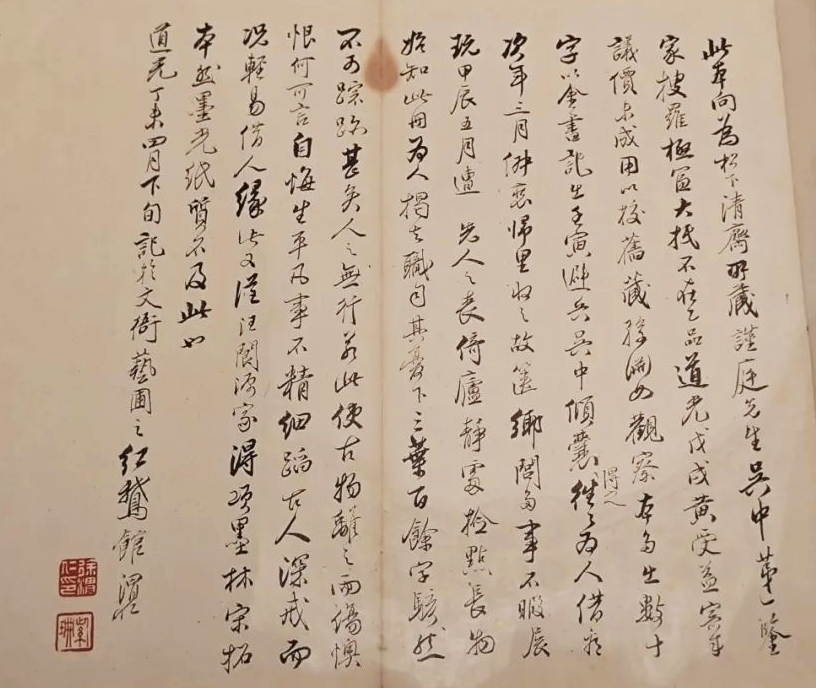 此本向為松下清齋所藏謹庭先生吳中第一鑒
家搜羅極富大抵不在上品道光戊戌黃受益寄
議價未成用以校舊藏孫淵如觀察本多出數十
字以金書記出壬寅避兵吳中傾囊得之往之為人借
次年三月歸里收之故篋鄉閭多事不暇展
玩甲辰五月遭先人之喪倚廬靜處檢點長物
始知此冊為人揭去職目其下三葉百餘字駭然
不可踪跡甚矣人之無行若此使古物離之而傷懊
恨何可言自悔生平凡事不精細蹈古人深戒而
況輕易借人緣此又從汪閬源家得項墨林宋拓
本然墨光紙質不及此也
道光丁未四月下旬記於文衙藝圃之紅鵞館渭仁
徐渭仁印
紫珊